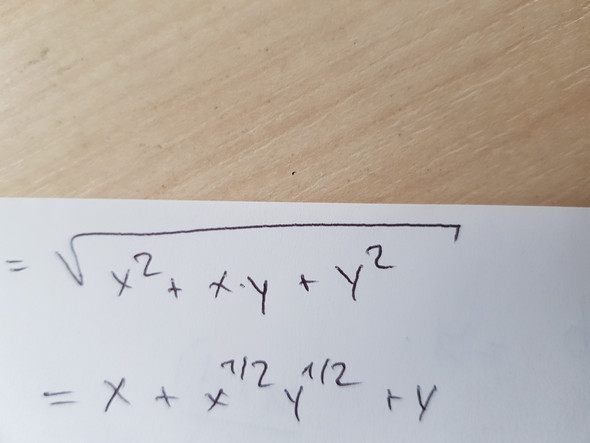 = √(x² + x·y + y²)
= x + x^1/2 y^1/2 + y